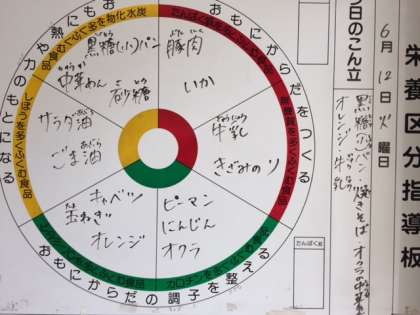 栄養区分指導板
6月12日火曜日
今日のこん立
黒糖(小)パン・焼きそば・オクラの中華
オレンジ・牛乳
おもにからだをつくる
熱や力のもとになる
おもにからだの調子を整える
炭水化物を多くふくむ食品
しぼうを多くふくむ食品
カロチンを多くふくむ食品
たんぱく
黒糖(小)パン
中華めん
砂糖
サラダ油
ごま油
豚肉
いか
牛乳
きざみのり
キャベツ
玉ねぎ
オレンジ
ピーマン
にんじん
オクラ